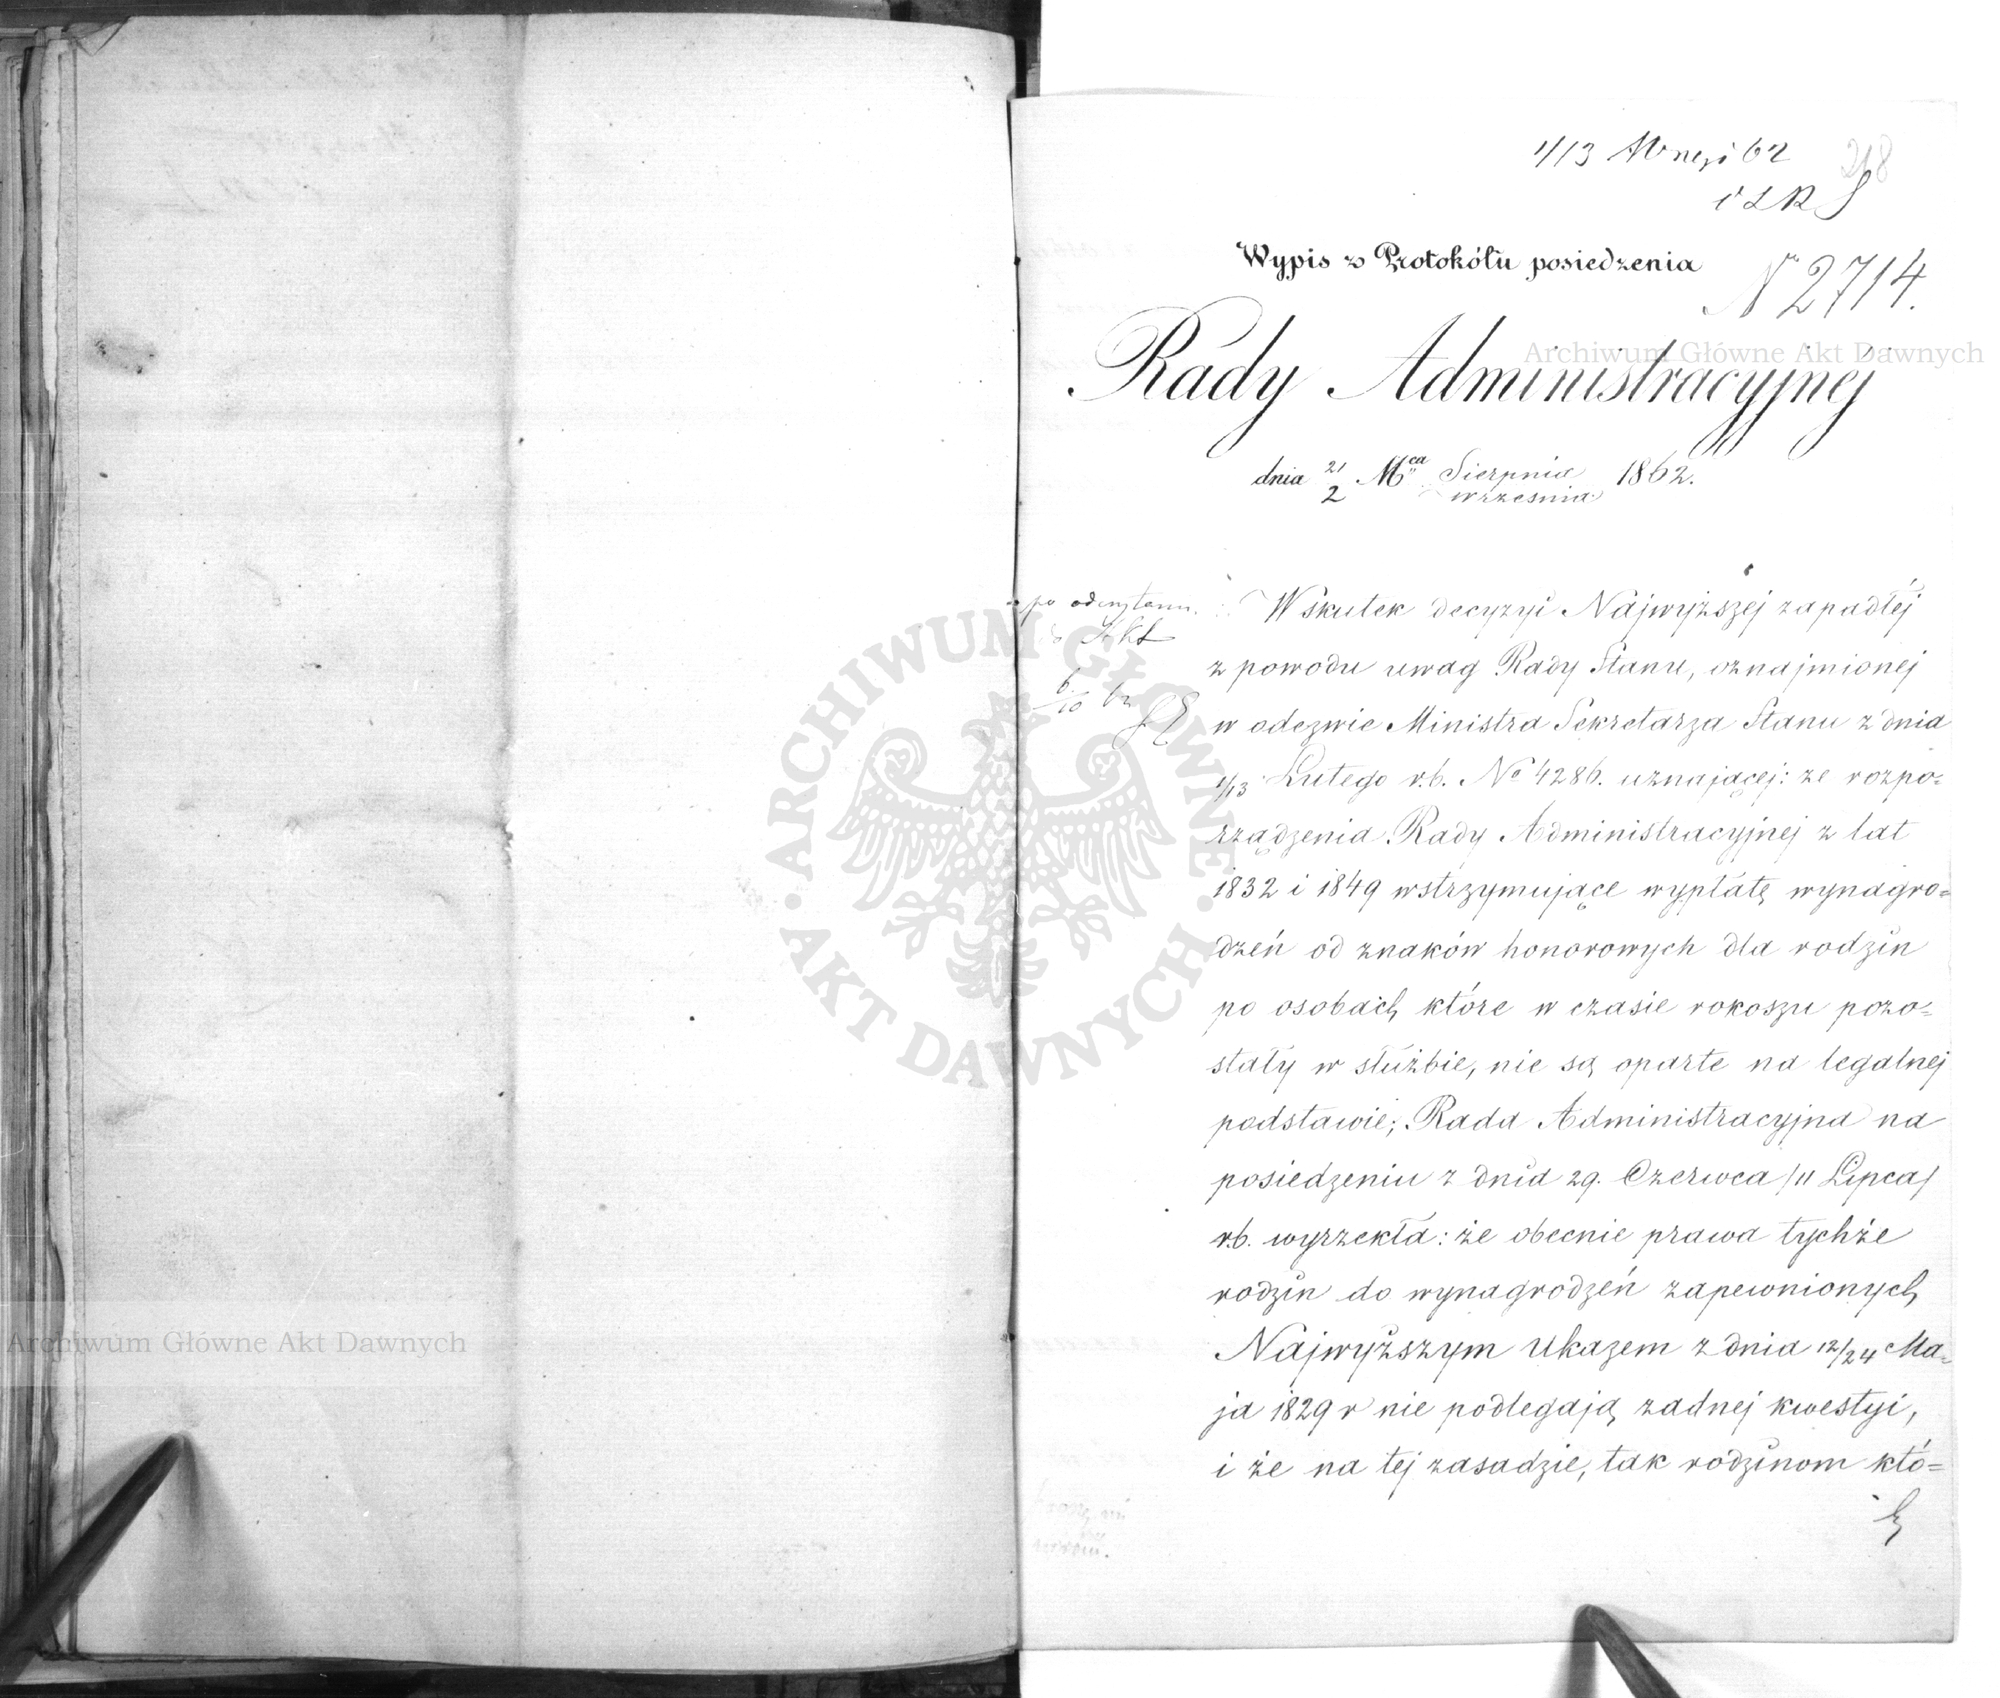 218
Wypis z Protokółu posiedzenia
N 2714.
Rady Administracyjnej
dnia 21/2 Mca Sierpnia/września 1862.
po odczytaniu
do Akt
6/10 62
Wskutek decyzyi Najwyższej zapadłéj
z powodu uwag Rady Stanu, oznajmionej
w odezwie Ministra Sekretarza Stanu z dnia
1/13 Lutego r.b. No 4286. uznającej: że rozpo=
rządzenia Rady Administracyjnej z lat
1832 i 1849 wstrzymujące wypłatę wynagro=
dzeń od znaków honorowych dla rodzin
po osobach, które w czasie rokoszu pozo=
stały w służbie, nie są oparte na legalnej
podstawie; Rada Administracyjna na
posiedzeniu z dnia 29. Czerwca /11 Lipca/
r.b. wyrzekła: że obecnie prawa tychże
rodzin do wynagrodzeń zapewnionych
Najwyższym Ukazem z dnia 12/24 Ma=
ja 1829 r nie podlegają żadnej kwestyi,
i że na tej zasadzie, tak rodzinom któ=
Archiwum Główne Akt Dawnych
ARCHIWUM GŁÓWNE · AKT DAWNYCH ·
Archiwum Główne Akt Dawnych